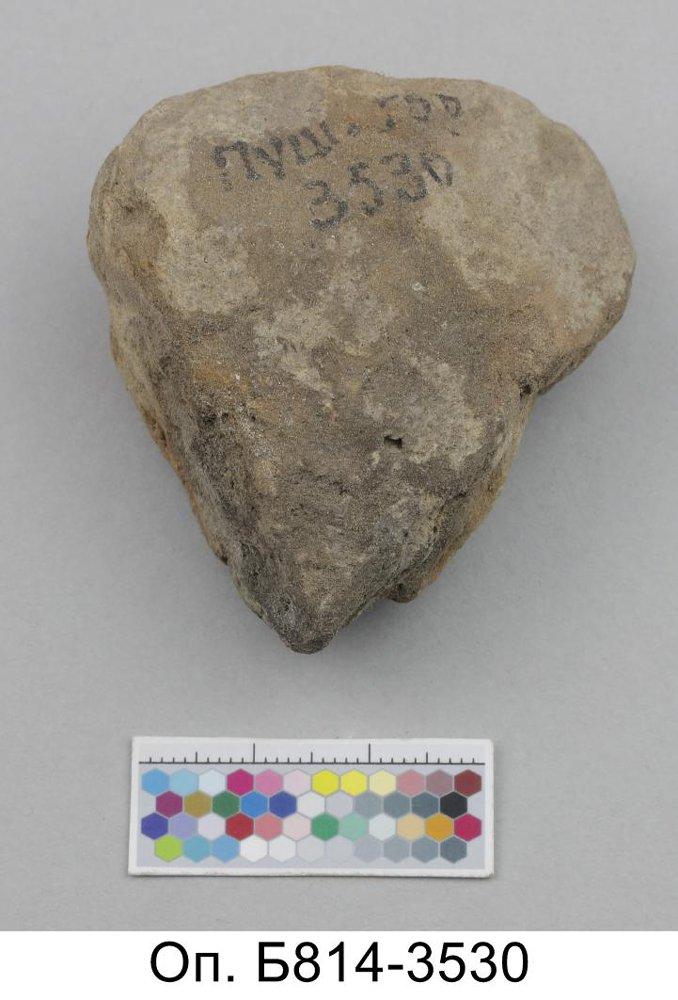 Пуш. гор
3530
Оп. Б814-3530